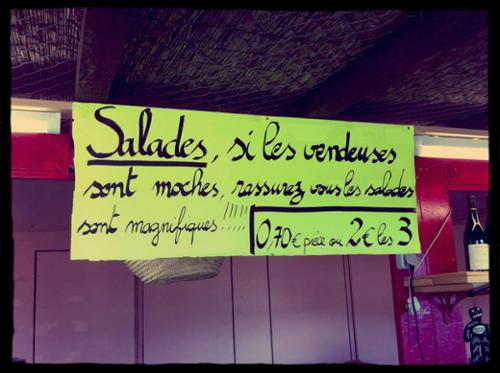 Salades, si les vendeuses
sont moches, rassurez vous les salades
sont magnifiques !!!!!.....
0,70€ pièce ou 2€ les 3